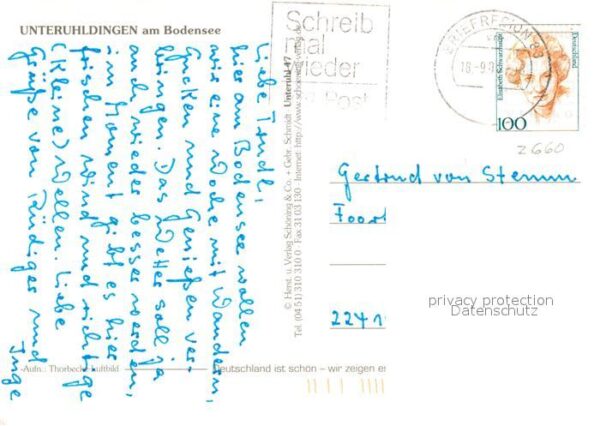 UNTERUHLDINGEN am Bodensee
Liebe Trudl,
hier am Bodensee wollen
wir eine Woche mit Wandern,
Gucken und Genießen ver-
bringen. Das Wetter soll ja
auch wieder besser werden,
im Moment gibt es hier
frischen Wind und richtige
(kleine) Wellen. Liebe
Grüße von Rüdiger und
Inge
Aufn.: Thorbecke-Luftbild
Deutschland ist schön – wir zeigen es
© Herst. u. Verlag Schöning & Co. + Gebr. Schmidt
Unteruhl 47
Tel. (0451) 310 310 0 · Fax 31 03 130 · Internet: http://www.schoening-verlag.de
Schreib
mal
wieder
Post
BRIEFREGION
18.-9.9
Elisabeth Schwarzhaupt
Deutschland
100
Z 660
Gertrud von Stemm
Foort
2241
privacy protection
Datenschutz